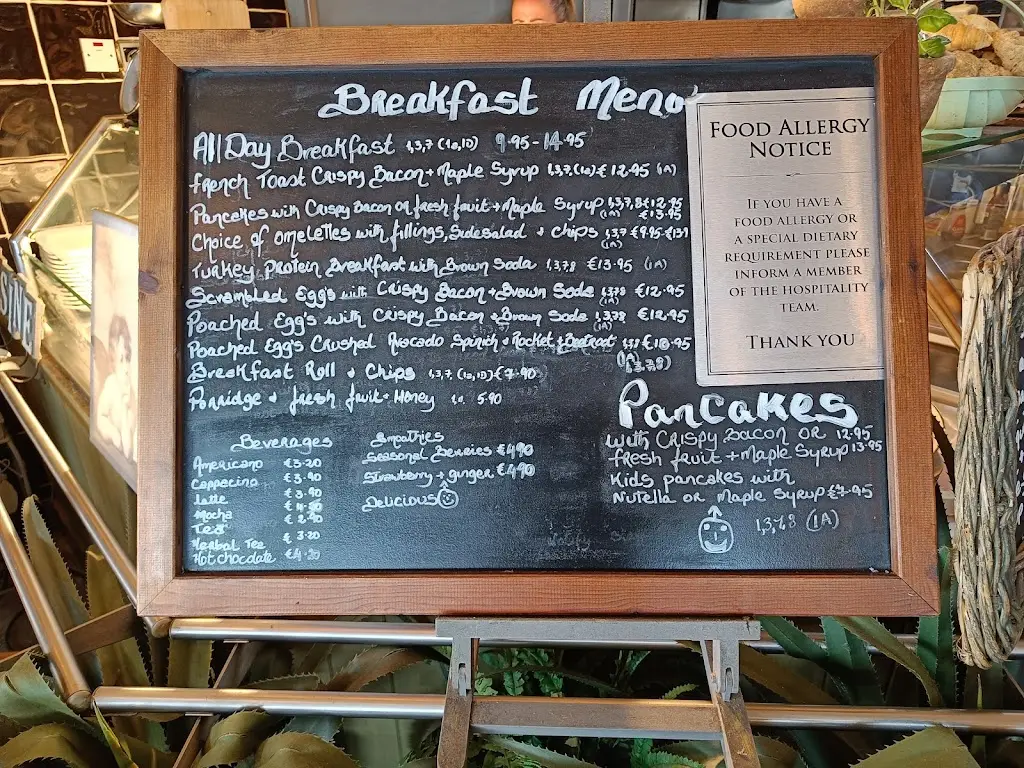 Breakfast Menu
All Day Breakfast 1,3,7 (1a,1D) 9.95 - 14.95
French Toast Crispy Bacon + Maple Syrup 1,3,7,(1a) € 12.95 (1A)
Pancakes with Crispy Bacon or fresh fruit + Maple Syrup 1,3,7,8 €12.95
(1A) €13.95
Choice of omelettes with fillings, Side salad + chips 1,3,7 €9.95-€13
(1A)
Turkey Protein Breakfast with Brown Soda 1,3,7,8 €13.95 (1A)
Scrambled Egg's with Crispy Bacon + Brown Soda 1,3,7,8 €12.95
(1A)
Poached Egg's with Crispy Bacon + Brown Soda 1,3,7,8 €12.95
(1A)
Poached Egg's Crushed Avocado Spinich + Rocket + Beetroot
Breakfast Roll + Chips 1,3,7, (1a,1D) € 7.90
Porridge + fresh fruit + Honey 5.90
Beverages
Americano €3.20
Cappocino €3.90
Latte €3.90
Mocha
Tea
Herbal Tea € 3.20
Hot chocolate
Smoothies
Seasonal Berries €4.90
Strawberry + ginger €4.90
Delicious
Pancakes
with Crispy Bacon OR 12.95
fresh fruit + Maple Syrup 13.95
Kids pancakes with
Nutella or Maple Syrup €7.95
1,3,7,8 (1A)
Food Allergy
Notice
If you have a
food allergy or
a special dietary
requirement please
inform a member
of the hospitality
team.
Thank you